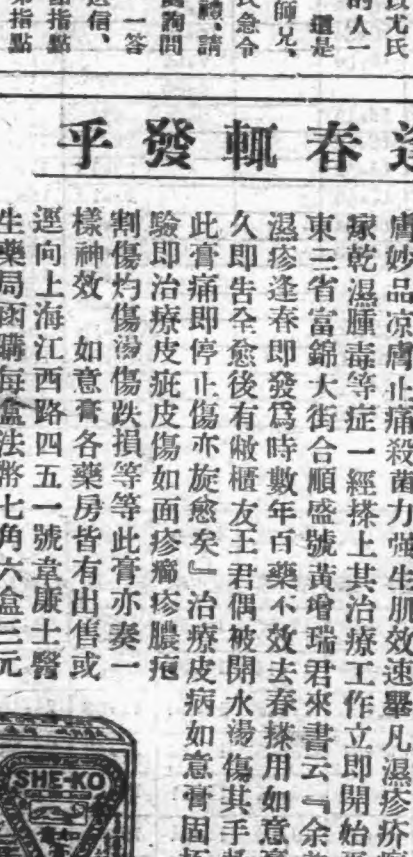 以尤氏
的人一
還是
師兄、
民急令
禮、請
詢問
一答
送信、
指點
逢春輒發乎
膚妙品凉膚止痛殺菌力强生肌效速舉凡濕疹疥
家乾濕腫毒等症一經搽上其治療工作立即開始
東三省富錦大街合順盛號黃璔瑞君來書云『余
濕疹逢春即發爲時數年百藥不效去春搽用如意膏
久即告全愈後有敝櫃友王君偶被開水湯傷其手
此膏痛即停止傷亦旋愈矣』治療皮病如意膏固
驗即治療皮疵皮傷如面疹癤疹膿疱
割傷灼傷湯傷跌損等等此膏亦奏一
樣神效 如意膏各藥房皆有出售或
逕向上海江西路四五一號韋廉士醫
生藥局函購每盒法幣七角六盒三元
SHE-KO
如意